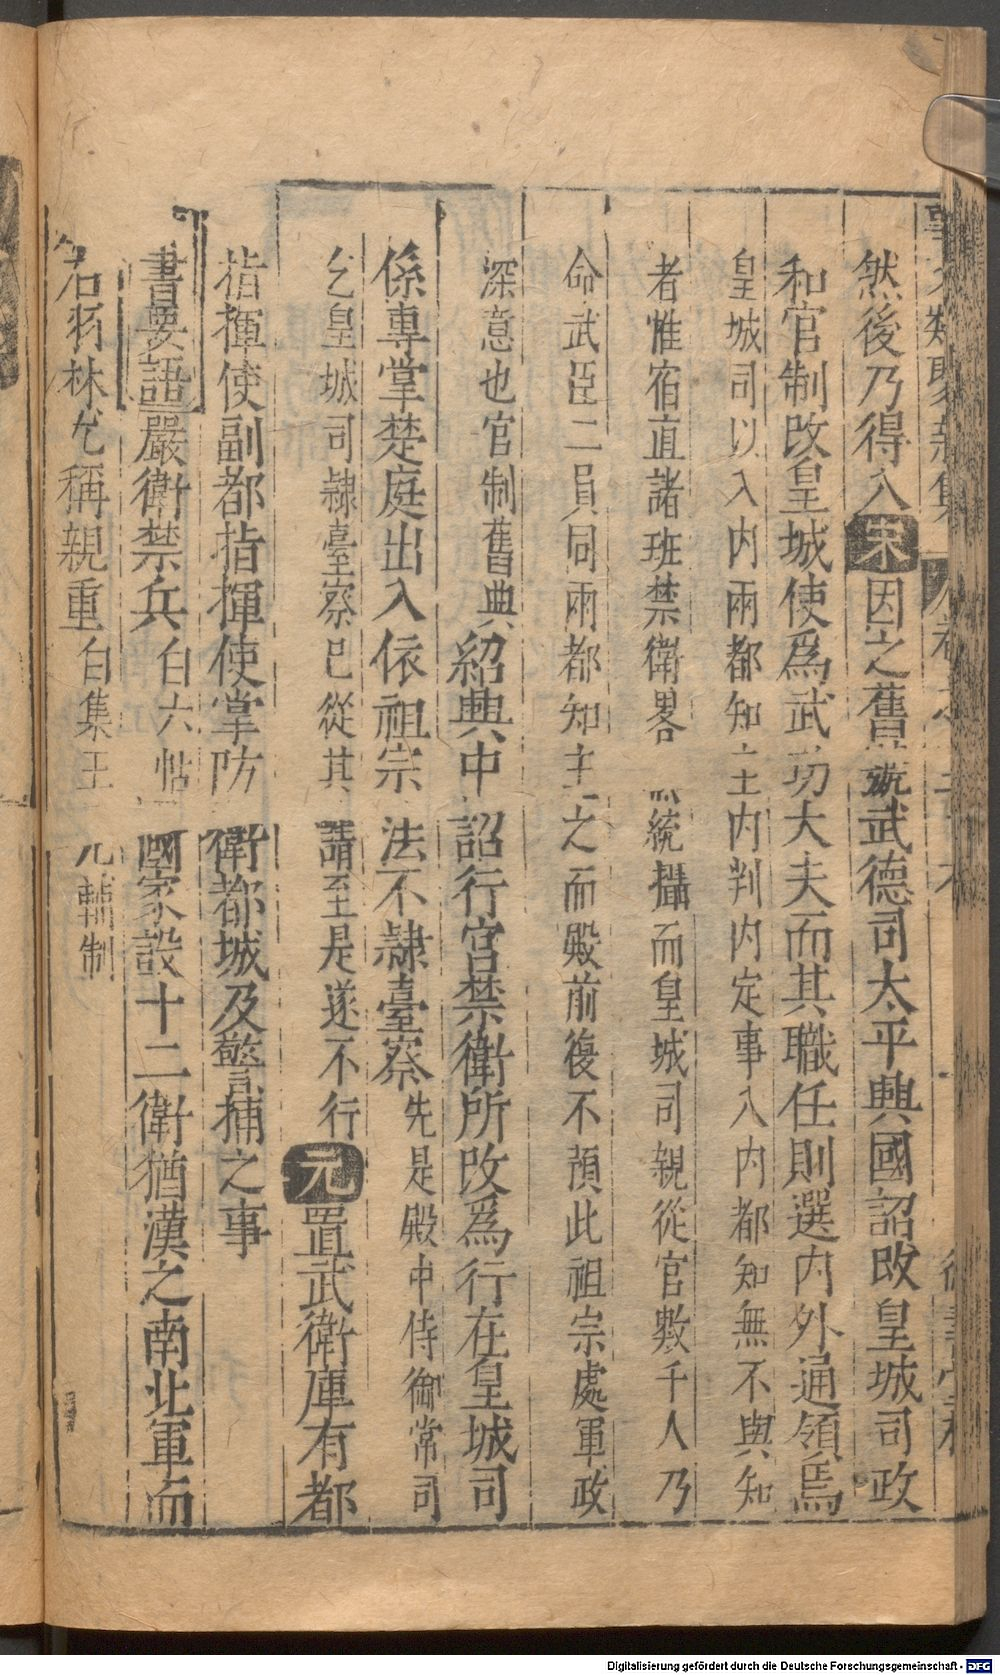 然後乃得入宋因之舊號武德司太平興國詔改皇城司政
和官制改皇城使爲武功大夫而其職任則選內外通領焉
皇城司以入内兩都知主内判内定事入内都知無不與知
者惟宿直諸班禁衛畧統攝而皇城司親從官數千人乃
命武臣二員同兩都知主之而殿前復不預此祖宗處軍政
深意也官制舊典紹興中詔行宫禁衛所改爲行在皇城司
係專掌楚庭出入依祖宗法不隷臺察先是殿中侍御常司
乞皇城司隷臺察已從其請至是遂不行元置武衛庫有都
指揮使副都指揮使掌防衛都城及警捕之事
書要語嚴衛禁兵白六帖國家設十二衛猶漢之南北軍而
右羽林尤稱親重白集王制
Digitalisierung gefördert durch die Deutsche Forschungsgemeinschaft - DFG